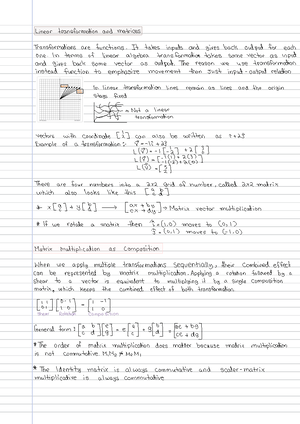 Linear transformation and matrices
Transformations are functions. It takes inputs and gives back output for each
one. In terms of linear algebra transformation takes some vector as input
and gives back some vector as output. The reason we use transformation
instead function to emphasize movement than just input-output relation
In linear transformation lines remain as lines and the origin
stays fixed
→ Not a linear
transformation
vectors with coordinate can also be written as
Example of a transformation:
There are four numbers into a 2x2 grid of number, called 2x2 matrix
which also looks like this [a b
c d]
* x[a c] + y[b d] → [ax + by
cx + dy] → Matrix vector multiplication
* If we rotate a matrix then î = (1,0) moves to (0,1)
ĵ = (0,1) moves to (-1,0)
Matrix Multiplication as Composition
When we apply multiple transformations sequentially, their combined effect
can be represented by matrix multiplication. Applying a rotation followed by a
shear to a vector is equivalent to multiplying it by a single composition
matrix, which keeps the combined effect of both transformation.
[1 1
0 1] [0 -1
1 0] = [1 -1
1 0]
Shear Rotation
General form: [a b
c d] [e
g] = e[a
c] + g[b
d] = [ae + bg
ce + dg]
* The order of matrix multiplication does matter because matrix multiplication
is not commutative. M₁M₂ ≠ M₂M₁
* The Identity matrix is always commutative and scaler-matrix
multiplicative is always commutative